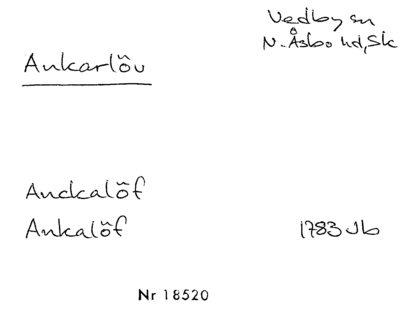 Vedby sn
N. Åsbo hd, Sk
Ankarlöv
Anckalöf
Ankalöf 1783 Jb
Nr 18520